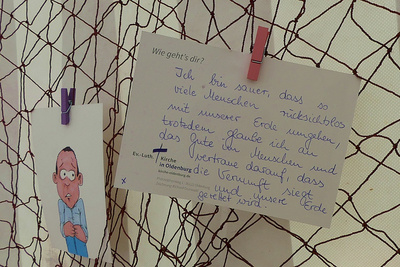 Wie geht's dir?
Ich bin sauer, dass so
viele Menschen rücksichtslos
mit unserer Erde umgehen,
trotzdem glaube ich an
das Gute im Menschen und
vertraue darauf, dass
die Vernunft siegt
und unsere Erde
gerettet wird
Ev.-Luth. Kirche
in Oldenburg
x